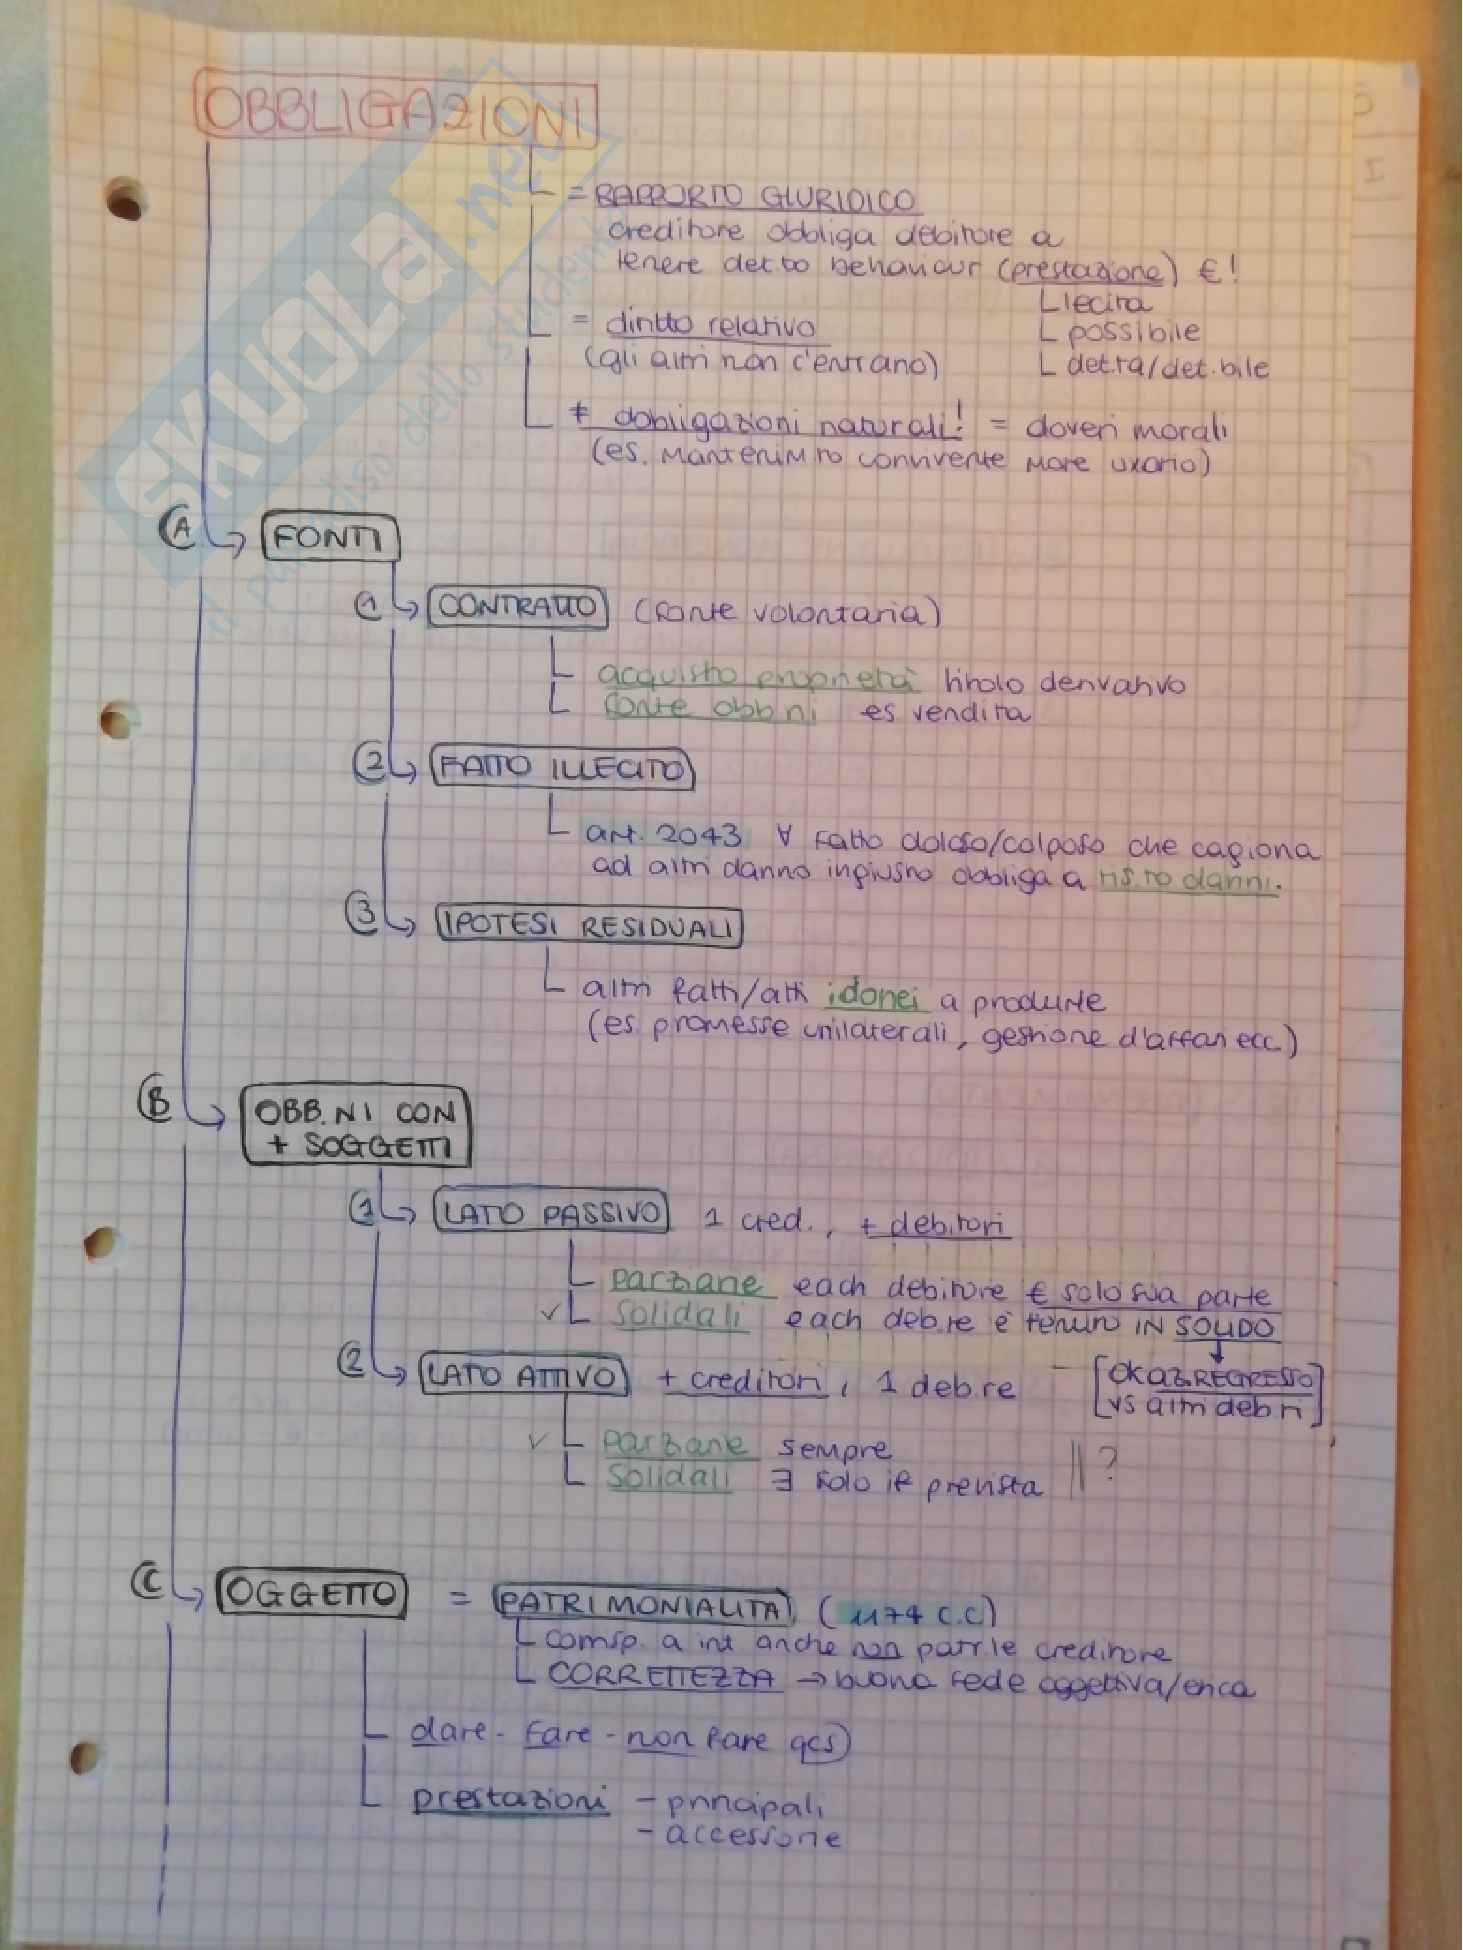 OBBLIGAZIONI
SKUOLA.net
il paradiso dello studente
= RAPPORTO GIURIDICO
creditore obbliga debitore a
tenere det.to behaviour (prestazione) €!
lecita
= diritto relativo
possibile
(gli altri non c'entrano)
det.ta/det.bile
≠ obbligazioni naturali! = doveri morali
(es. mantenim.to convivente more uxorio)
A FONTI
1 CONTRATTO (fonte volontaria)
acquisto proprietà titolo derivativo
fonte obb.ni es vendita
2 FATTO ILLECITO
art. 2043 ∀ fatto doloso/colposo che cagiona
ad altri danno ingiusto obbliga a ris.to danni.
3 IPOTESI RESIDUALI
altri fatti/atti idonei a produrle
(es promesse unilaterali, gestione d'affari ecc)
B OBB.NI CON
+ SOGGETTI
1 LATO PASSIVO 1 cred., + debitori
parziarie each debitore € solo sua parte
✓ solidali each deb.re è tenuto IN SOLIDO
2 LATO ATTIVO + creditori, 1 deb.re - [ok az. REGRESSO
vs altri deb.ri]
✓ parziarie sempre
solidali ∃ solo if prevista || ?
C OGGETTO = PATRIMONIALITÀ (1174 c.c)
corrisp. a int anche non patr.le creditore
CORRETTEZZA → buona fede oggettiva/etica
dare - fare - non fare qcs)
prestazioni - principali
- accessorie